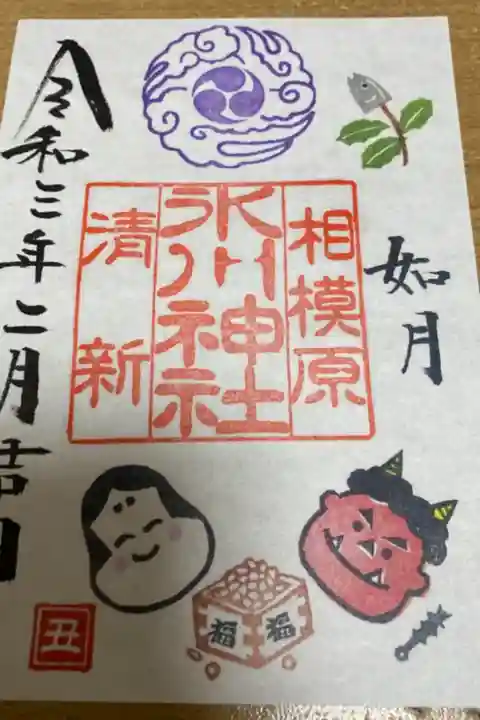 如月
相模原
氷川神社
清新
令和三年二月吉日
福
福
丑